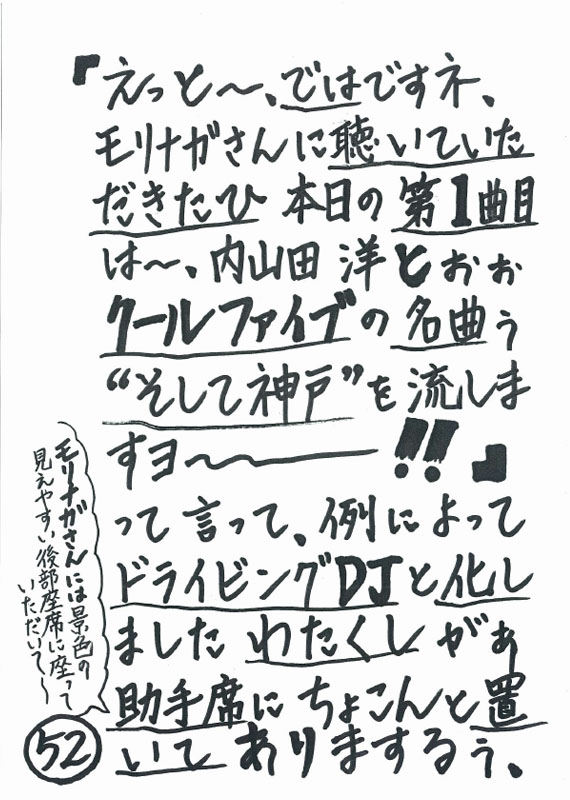 『えっと〜、ではですネ、
モリナガさんに聴いていた
だきたひ 本日の 第1曲目
は〜、内山田 洋とぉぉ
クールファイブの名曲ぅ
“そして神戸”を流しま
すヨ〜〜――!!』
って言って、例によって
ドライビングDJと化し
ました わたくしがぁ
助手席にちょこんと置
いてありまするぅ。
モリナガさんには景色の
見えやすい後部座席に座って
いただいて〜
52